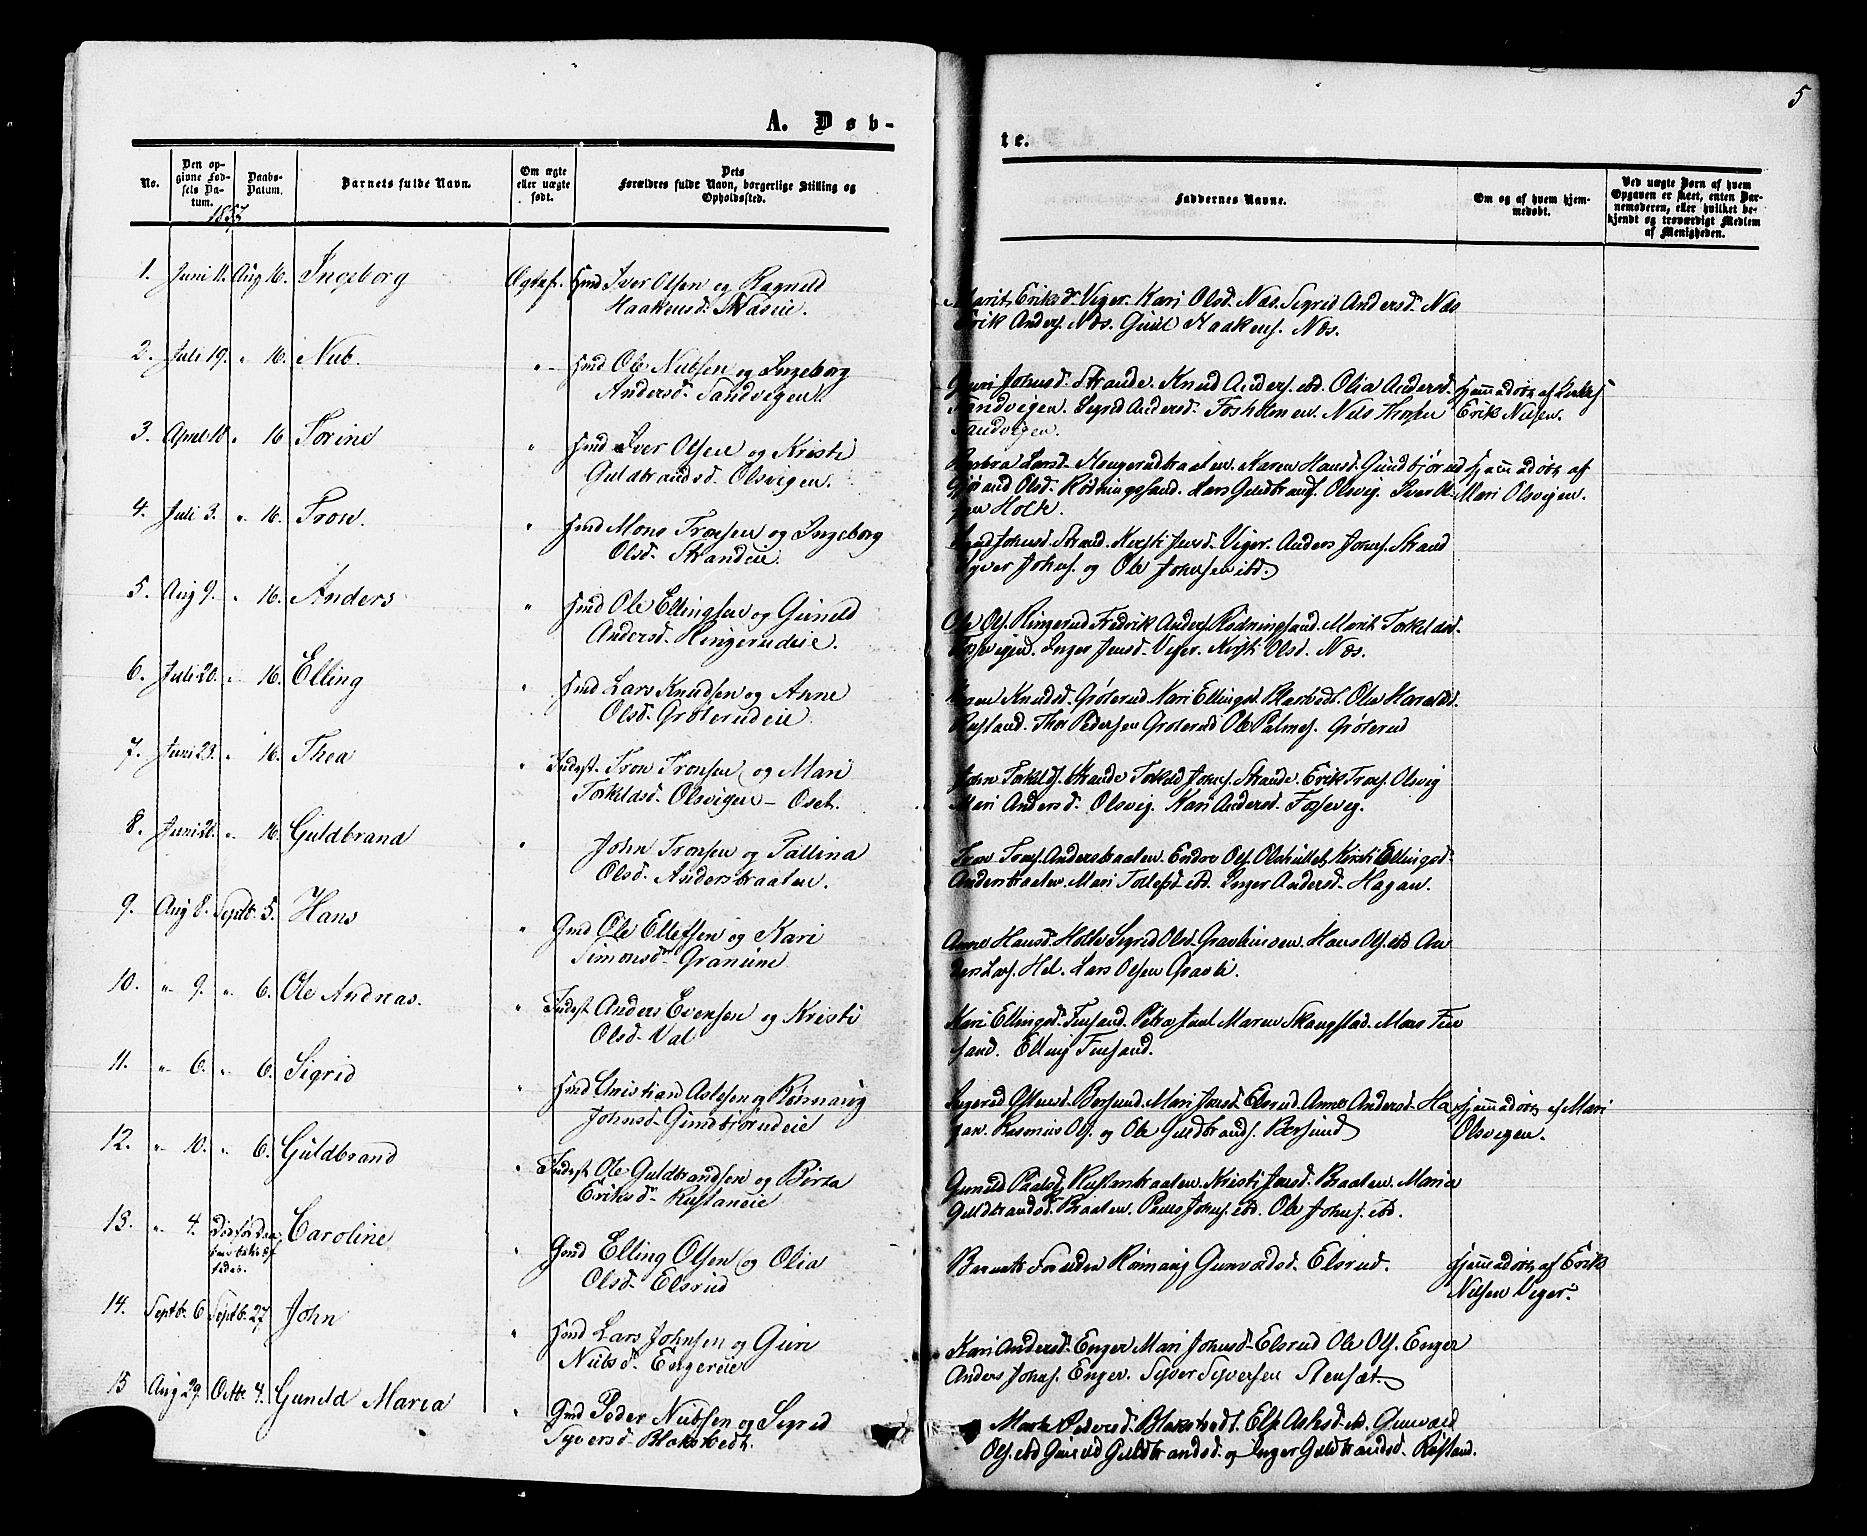 5
A. Døb-
te.
No.
Den op-
givne Fød-
sels Da-
tum.
Daabs-
Datum.
Barnets fulde Navn.
Om ægte
eller uægte
født.
Dets
Forældres fulde Navn, borgerlige Stilling og
Opholdssted.
Faddernes Navne.
Om og af hvem hjem-
medøbt.
Ved uægte Børn af hvem
Opgaven er skeet, enten Bar-
nemoderen, eller hvilket be-
kjendt og troværdigt Medlem
af Menigheden.
1857
1. Juni 11. Aug 16. Ingeborg Ægtef. Hmd Iver Olsen og Ragnild
Haakensd.
Marit Eriksd. Viger. Kari Olsd. Næs. Sigrid Andersd. Næs
Erik Anders. Næs. Haakens. Næs.
2. Juli 19. " 16. Nub. " Hmd Ole Nubsen og Ingeborg
Andersd. Sandvigen.
Guri Johnsd. Strande. Knud Anders. ibd. Olia Andersd.
Sandvigen. Sigrid Andersd. Fosholmen. Nils
Sandvigen.
Hjemmedøbt af
Erik Nilsen.
3. April 10 " 16 Torine " Hmd Iver Olsen og Kristi
Guldbrandsd. Olsvigen.
Barbra Larsd. Hougerudbraaten. Karen Hansd. Gundbjørud
Olsd. Rødningsand. Lars Guldbrands. Olsvig. Iver Ol-
sen Holte.
Hjemmedøbt af
Mari Olsvigen.
4. Juli 3. " 16. Tron. " Hmd Mons Tronsen og Ingeborg
Olsd. Strandeie.
Johnsd. Strand. Kristi Jensd. Viger. Anders Johns. Strand
Syver Johns. og Ole Johnsen ibd.
5. Aug 9. " 16. Anders " Hmd Ole Ellingsen og Gunild
Andersd. Ringerudeie.
Ole Ols. Ringerud Fredrik Anders. Rødningsand. Marit Torkildsd.
Inger Jensd. Viger. Kristi Olsd. Næs.
6. Juli 20. " 16. Elling " Hmd Lars Knudsen og Anne
Olsd. Grøterudeie.
Knudsd. Grøterud. Kari Ellingsd. Blakstedt. Ole Haralds.
Rustand. Thor Pedersen Grøterud Ole Palmes. Grøterud
7. Juni 23. " 16. Thea " Indest. Tron Tronsen og Mari
Torkildsd. Olsvigen - Oset.
John Torkilds. Strande Torkild Johns. Strande. Erik Trons. Olsvig
Mari Andersd. Olsvig. Kari Andersd. Fossevig.
8. Juni 21. " 16. Guldbrand " John Tronsen og Pallina
Olsd. Andersbraaten.
Tron Trons. Andersbraaten. Endre Ols. Kristi Ellingsd.
Andersbraaten. Mari Tollefsd. ibd. Inger Andersd. Hagan.
9. Aug 8. Septb. 5. Hans " Gmd Ole Ellefsen og Kari
Simonsd.
Anne Hansd. Holte Sigrid Olsd. Hans Ols. ibd An-
ders Lars. Lars Olsen
10. " 9. " 6. Ole Andreas. " Indest Anders Evensen og Kristi
Olsd. Val
Kari Ellingsd. Finsand. Petra Juul Maren Skaugstad. Mons Fin
sand. Elling Finsand.
11. " 6. " 6. Sigrid " Hmd Christian Aslesen og Rønnaug
Johnsd. Gundbjørudeie
Bersund. Mari Jonsd. Elsrud. Anne Andersd. Ha
gan. Rasmus Ols. og Ole Guldbrands. Bersund
Hjemmedøbt af Mari
Olsvigen.
12. " 10. " 6. Guldbrand " Indest Ole Guldbrandsen og Birta
Eriksd. Rustaneie
Gunild Paalsd. Rustanbraaten. Kristi Jensd. Braaten. Maria
Guldbrandsd. Braaten. Paul Johns. ibd. Ole Johns. ibd.
13. " 4. Død før Daa
Caroline " Gmd Elling Olsen og Olia
Olsd. Elsrud
Barnets Forældre Rønnaug Gunvaldsd. Elsrud.
Hjemmedøbt af Erik
Nilsen Viger.
14. Septb. 6 Septb. 27 John " Hmd Lars Johnsen og Guri
Nubsd. Engereie
Kari Andersd. Enger Mari Johnsd. Elsrud Ole Ols. Enger
Anders Johns. Enger. Syver Syversen Stensæt.
15 Aug 29. Octb. 4. Gunild Maria " Gmd Peder Nubsen og Sigrid
Syversd. Blakstedt.
Marte Pedersd. Blakstedt. Else Aslesd. ibd. Gunvald
Ols. ibd Gunild Guldbrandsd. og Inger Guldbrandsd. Rustand.